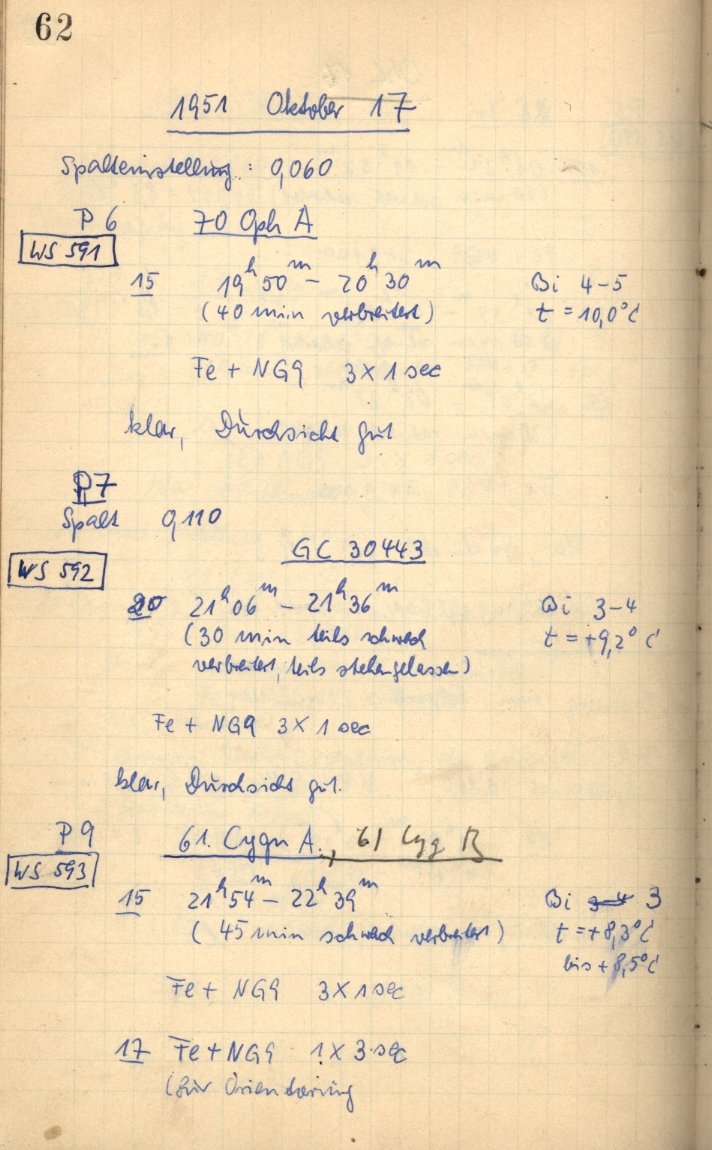 62
1951 Oktober 17
Spalteinstellung: 0,060
P 6 70 Oph A
WS 591
15 19h 50m – 20h 30m Bi 4-5
(40 min verbreitert) t = 10,0°C
Fe + NG9 3 X 1 sec
klar, Durchsicht gut
P7
Spalt 0,110
GC 30443
WS 592
20 21h 06m – 21h 36m Bi 3-4
(30 min teils schwach t = +9,2°C
verbreitert, teils stehengelassen)
Fe + NG9 3 X 1 sec
klar, Durchsicht gut.
P 9 61. Cygni A., 61 Cyg B
WS 593
15 21h 54m – 22h 39m Bi 3-4 3
(45 min schwach verbreitert) t = +8,3°C
bis +8,5°C
Fe + NG9 3 X 1 sec
17 Fe + NG9 1 X 3 sec
(zur Orientierung